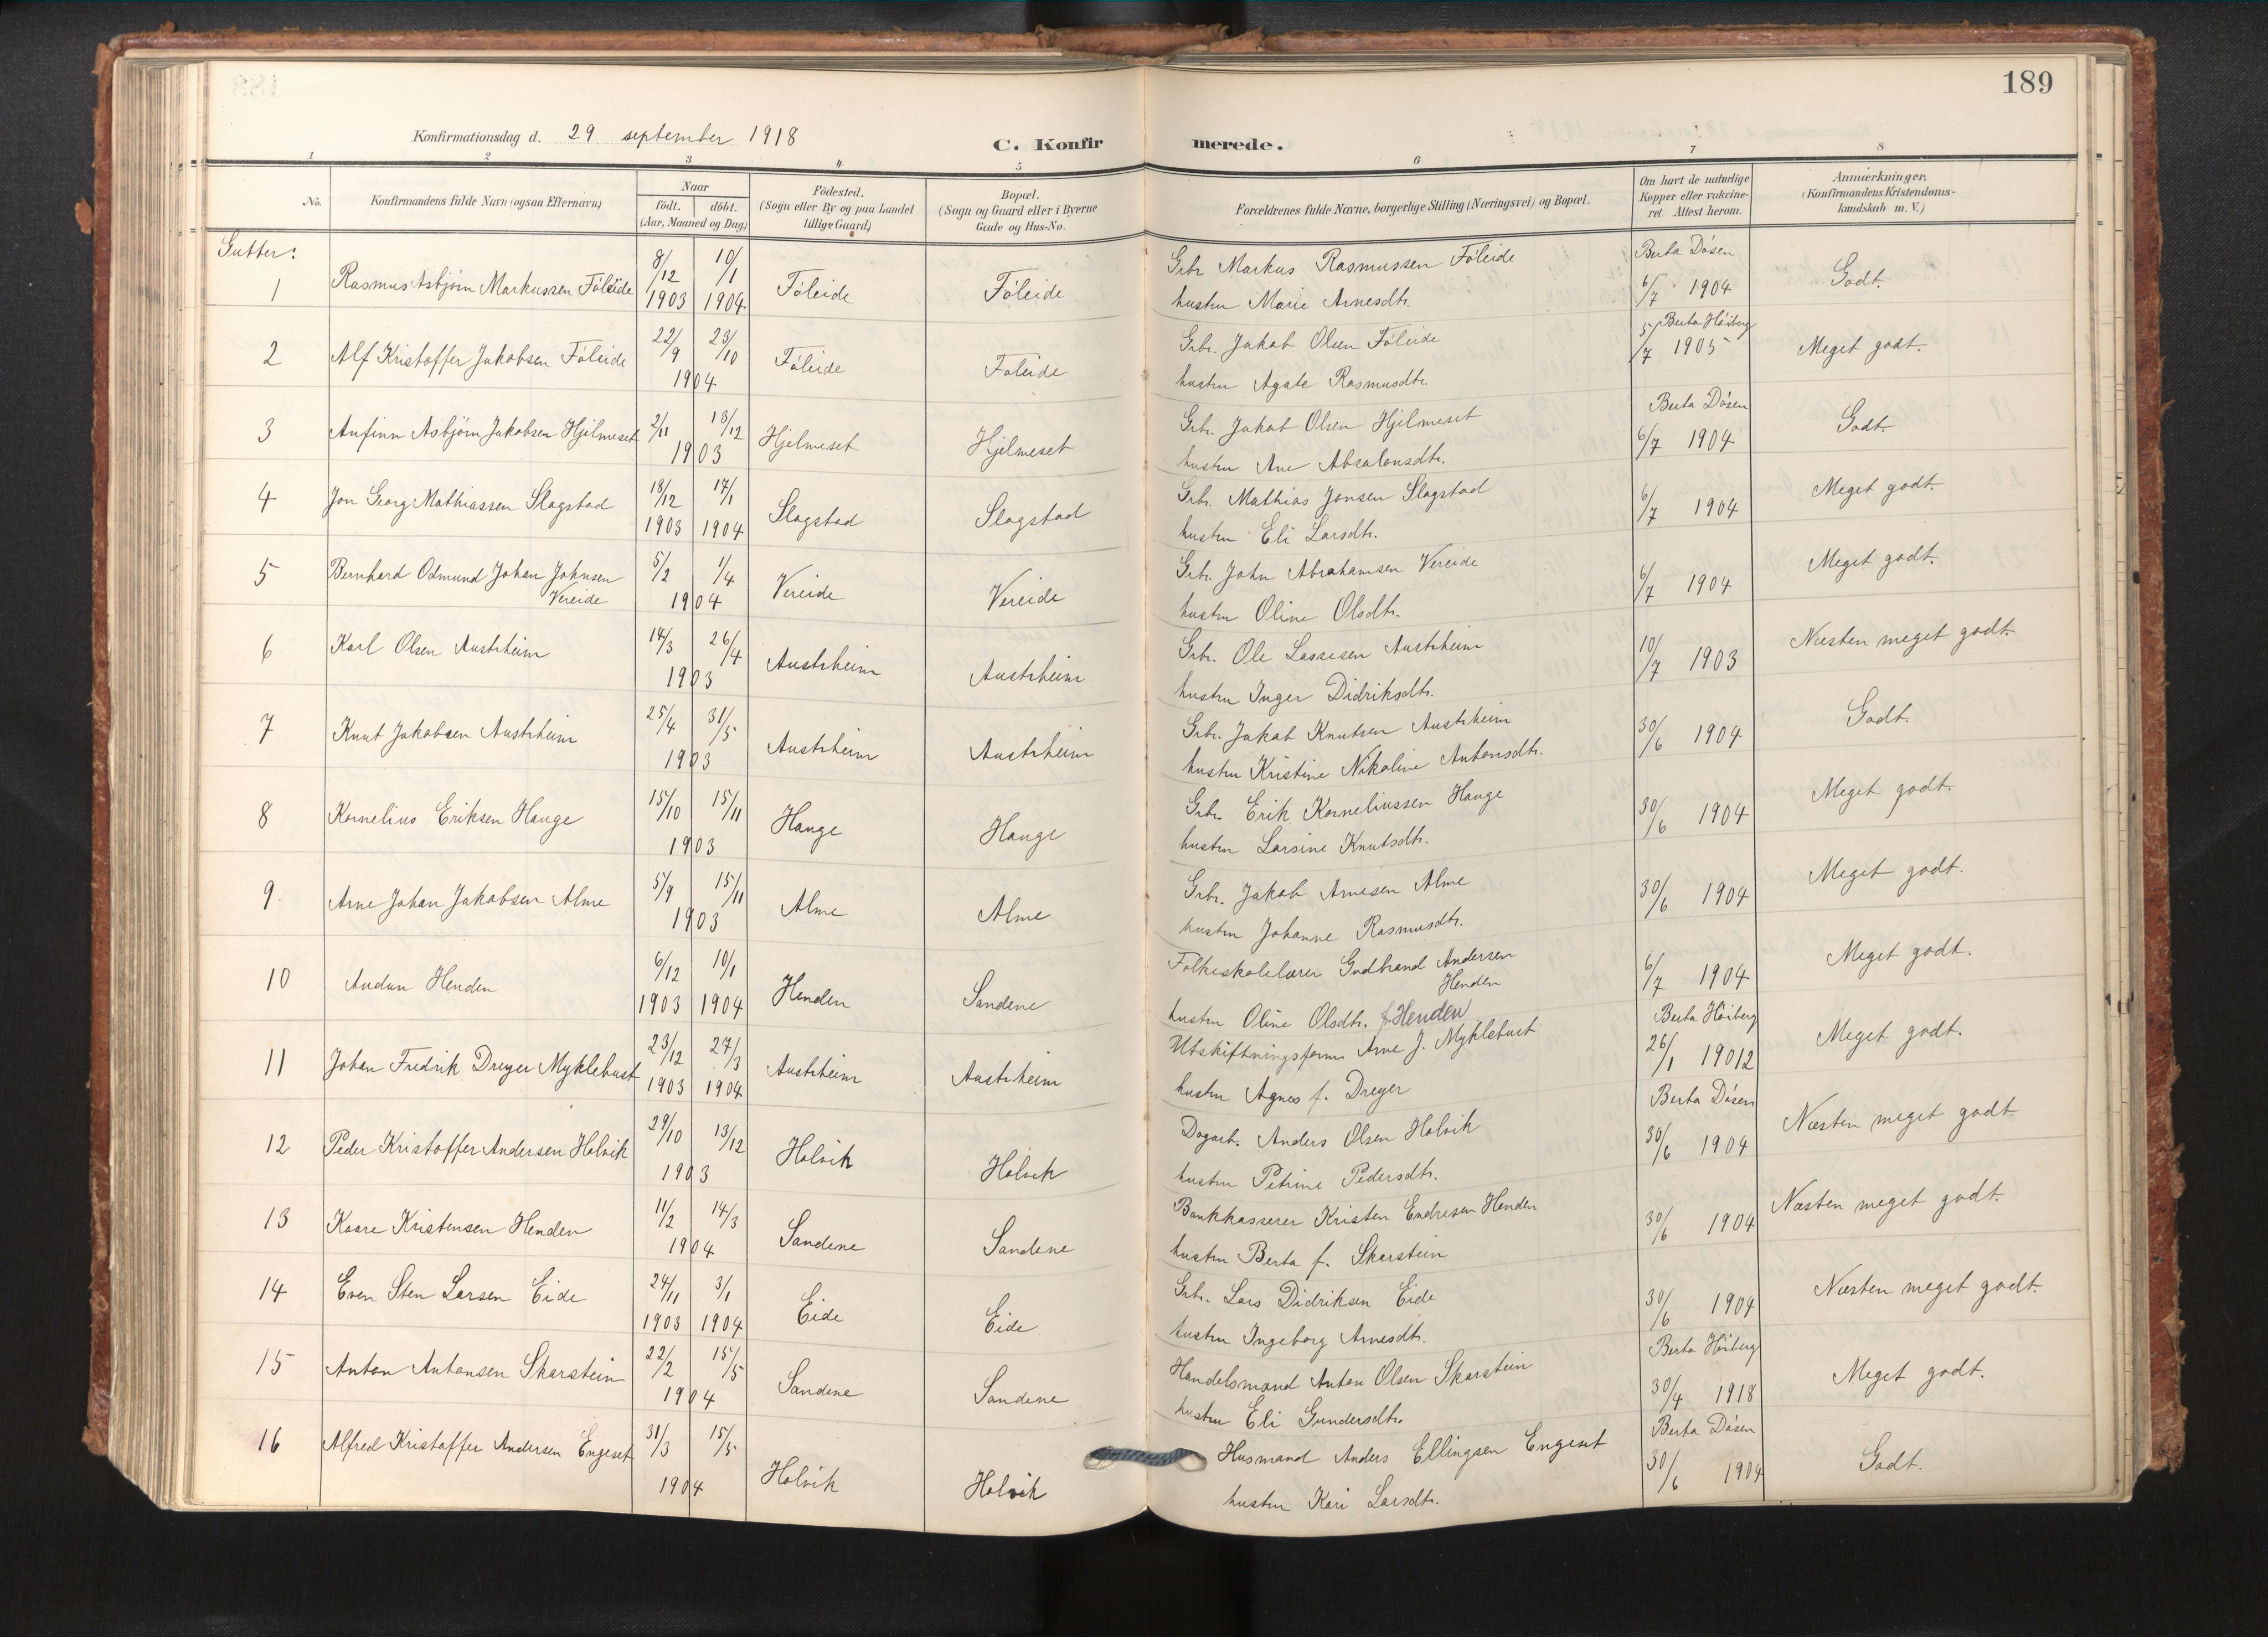 189
Konfirmationsdag d. 29 september 1918
C. Konfirmerede.
1 2 3 4 5 6 7 8
No.
Konfirmandens fulde Navn (ogsaa Efternavn)
Naar
födt. döbt.
(Aar, Maaned og Dag)
Födested.
(Sogn eller By og paa Landet
tillige Gaard)
Bopæl.
(Sogn og Gaard eller i Byerne
Gade og Hus-No.
Forældrenes fulde Navne, borgerlige Stilling (Næringsvei) og Bopæl.
Om havt de naturlige
Kopper eller vakcine-
ret. Attest herom.
Anmærkninger.
(Konfirmandens Kristendoms-
kundskab m. V.)
Gutter:
1 Rasmus Asbjørn Markussen Føleide 8/12 1903 10/1 1904 Føleide Føleide Grbr Markus Rasmussen Føleide Berta Døsen 6/7 1904 Godt.
hustru Marie Arnesdtr.
2 Alf Kristoffer Jakobsen Føleide 22/9 23/10 1904 Føleide Føleide Grbr. Jakob Olsen Føleide Berta Høiberg 5/7 1905 Meget godt.
hustru Agate Rasmusdtr.
3 Anfinn Asbjørn Jakobsen Hjelmeset 2/11 13/12 1903 Hjelmeset Hjelmeset Grbr. Jakob Olsen Hjelmeset Berta Døsen 6/7 1904 Godt.
hustru Ane Absalonsdtr.
4 Jon Georg Mathiassen Slagstad 18/12 1903 17/1 1904 Slagstad Slagstad Grbr. Mathias Jonsen Slagstad 6/7 1904 Meget godt.
hustru Eli Larsdtr.
5 Bernhard Odmund Johan Johnsen Vereide 5/2 1/4 1904 Vereide Vereide Grbr. John Abrahamsen Vereide 6/7 1904 Meget godt.
hustru Oline Olsdtr.
6 Karl Olsen Austrheim 14/3 26/4 1903 Austrheim Austrheim Grbr. Ole Lassesen Austrheim 10/7 1903 Næsten meget godt.
hustru Inger Didriksdtr.
7 Knut Jakobsen Austrheim 25/4 31/5 1903 Austrheim Austrheim Grbr. Jakob Knutsen Austrheim 30/6 1904 Godt.
hustru Kristine Nikoline Antonsdtr.
8 Kornelius Eriksen Hauge 15/10 15/11 1903 Hauge Hauge Grbr. Erik Korneliussen Hauge 30/6 1904 Meget godt.
hustru Larsine Knutsdtr.
9 Arne Johan Jakobsen Alme 5/9 15/11 1903 Alme Alme Grbr. Jakob Arnesen Alme 30/6 1904 Meget godt.
hustru Johanne Rasmusdtr.
10 Audun Henden 6/12 1903 10/1 1904 Henden Sandene Folkeskolelærer Gudbrand Andersen Henden 6/7 1904 Meget godt.
hustru Oline Olsdtr. f. Henden
11 Johan Fredrik Dreyer Myklebust 23/12 1903 27/3 1904 Austrheim Austrheim Utskiftningsform. Arne J. Myklebust Berta Høiberg 26/1 19012 Meget godt.
hustru Agnes f. Dreyer
12 Peder Kristoffer Andersen Holvik 29/10 13/12 1903 Holvik Holvik Dagarb. Anders Olsen Holvik Berta Døsen 30/6 1904 Næsten meget godt.
hustru Petrine Pedersdtr.
13 Kaare Kristensen Henden 11/2 14/3 1904 Sandene Sandene Bankkasserer Kristen Endresen Henden 30/6 1904 Næsten meget godt.
hustru Berta f. Skarstein
14 Even Sten Larsen Eide 24/11 1903 3/1 1904 Eide Eide Grbr. Lars Didriksen Eide 30/6 1904 Næsten meget godt.
hustru Ingeborg Arnesdtr.
15 Anton Antonsen Skarstein 22/2 15/5 1904 Sandene Sandene Handelsmand Anton Olsen Skarstein Berta Høiberg 30/4 1918 Meget godt.
hustru Eli Gundersdtr.
16 Alfred Kristoffer Andersen Engeset 31/3 15/5 1904 Holvik Holvik Husmand Anders Ellingsen Engeset Berta Døsen 30/6 1904 Godt.
hustru Kari Larsdtr.